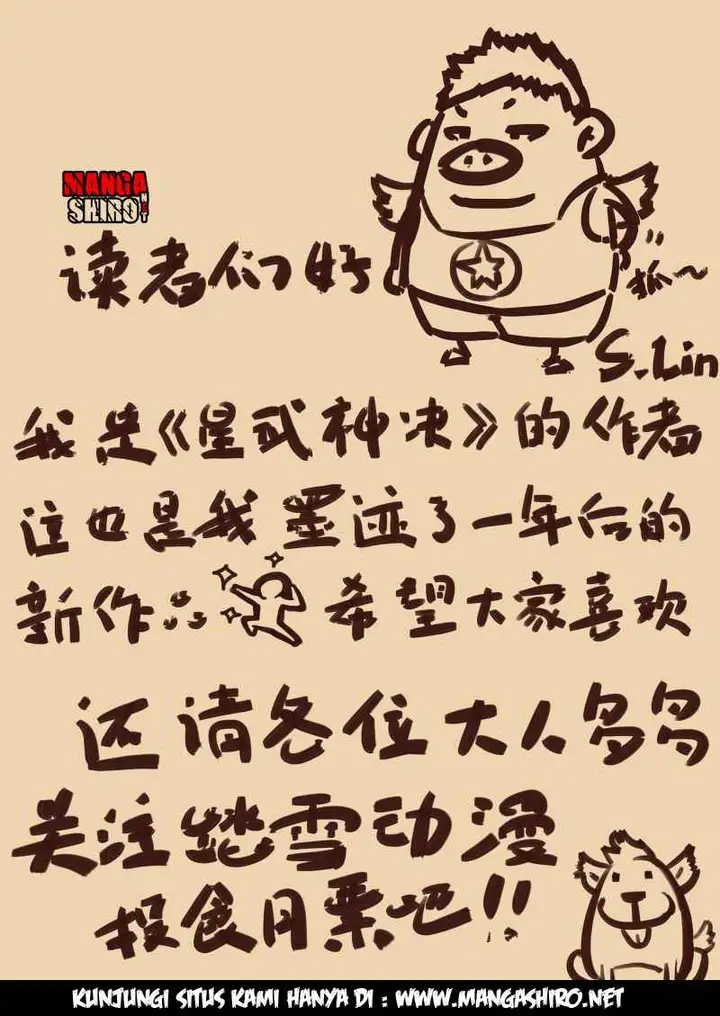 MANGA
SHIRO
NET
读者们好
抓~
S.Lin
我是《星武神决》的作者
这也是我墨迹了一年后的
新作
希望大家喜欢
还请各位大人多多
关注踏雪动漫
投食月票吧!!
KUNJUNGI SITUS KAMI HANYA DI : WWW.MANGASHIRO.NET